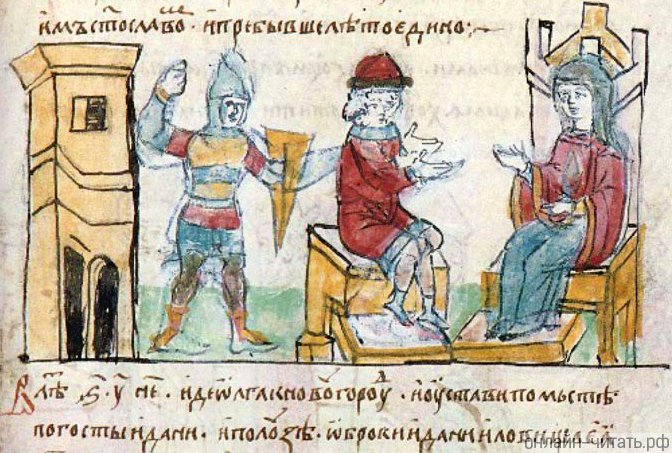 имъ стославо · и пребывше лѣто едино :·
В лѣ҇ ѕ҃ · у҃ · не҃ · иде ѡлга к новоугороду · и оустави по мьстѣ
погосты и дани · и по лоѕѣ · ѡброки и дани и ловища еѧ
онлайн-читать.рф